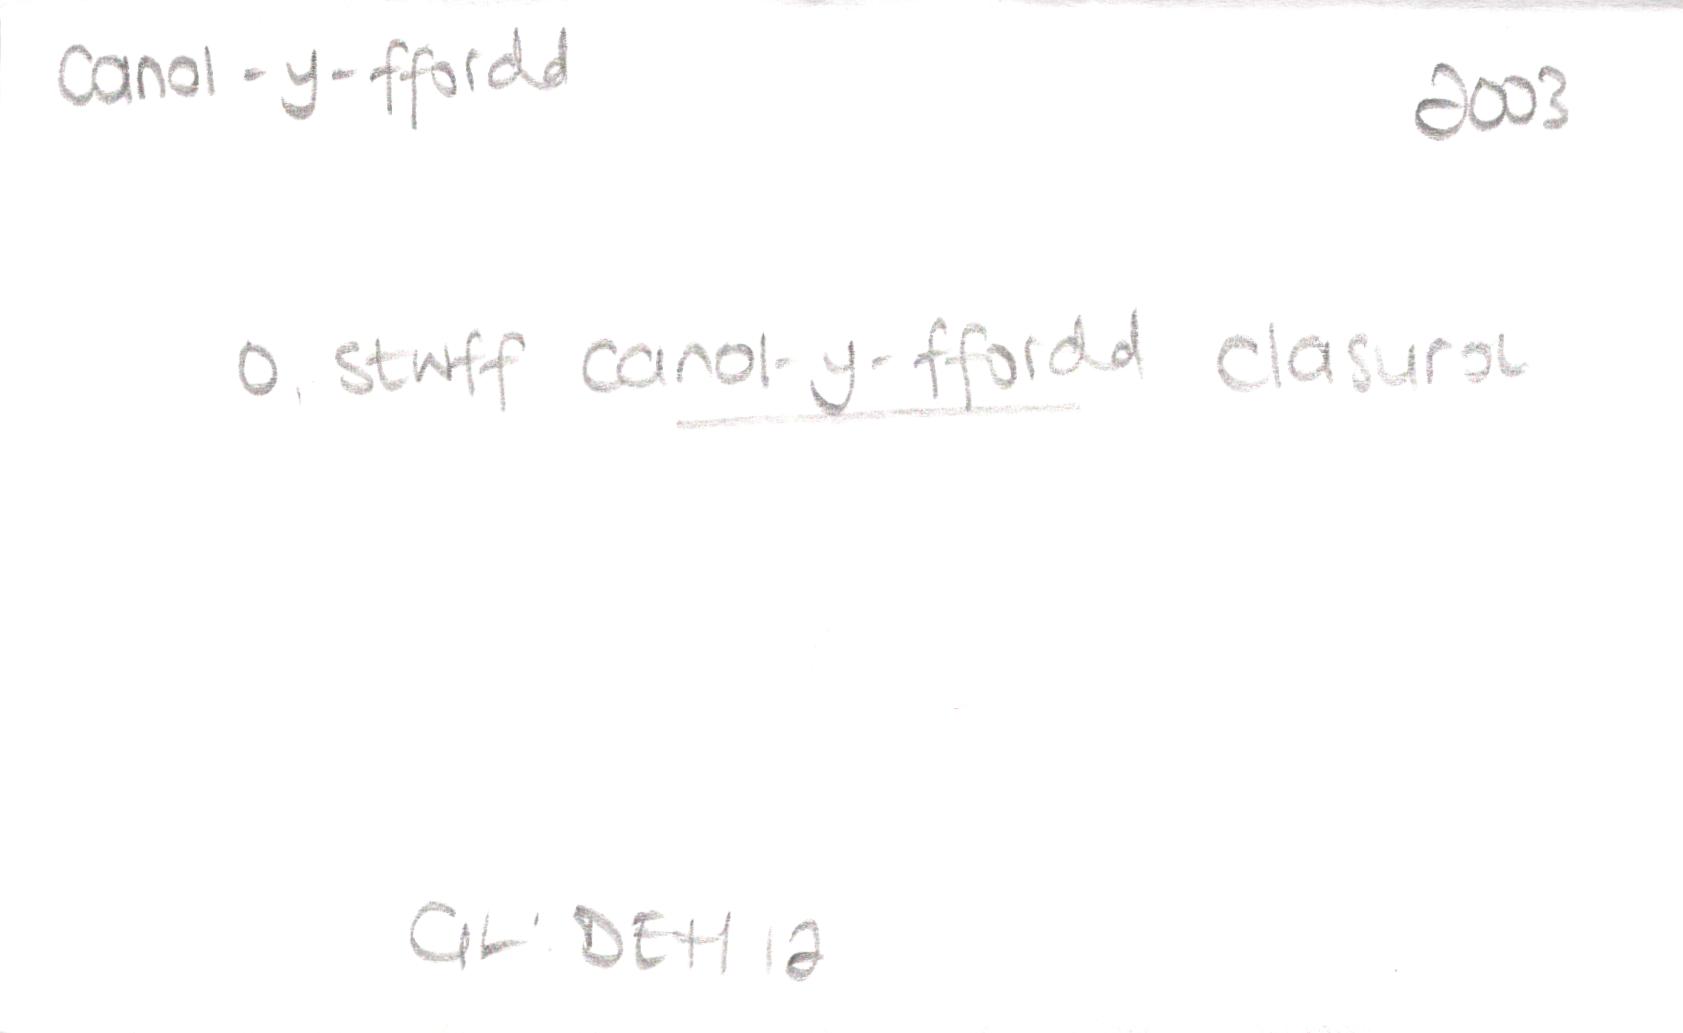 Canol-y-ffordd 2003
O, stwff canol-y-ffordd clasurol
GL: DEH 12